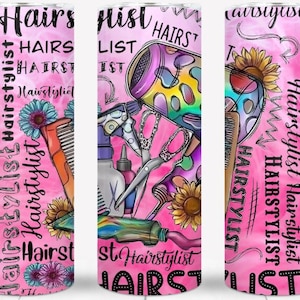 Hairstylist
HAIRS
HAIRST
Hairstylist
Hairstylist
Hairstylist
Hairstylist
Hairst
ylist
HAIRST
LIST
LIST
st Hairstylist
HAIRST
Hairstylist
HAIRSTYLIST
HAIRSTYLIST
Hairstylist
HAIRSTYLIST
Hairstylist
ylist
YLIST